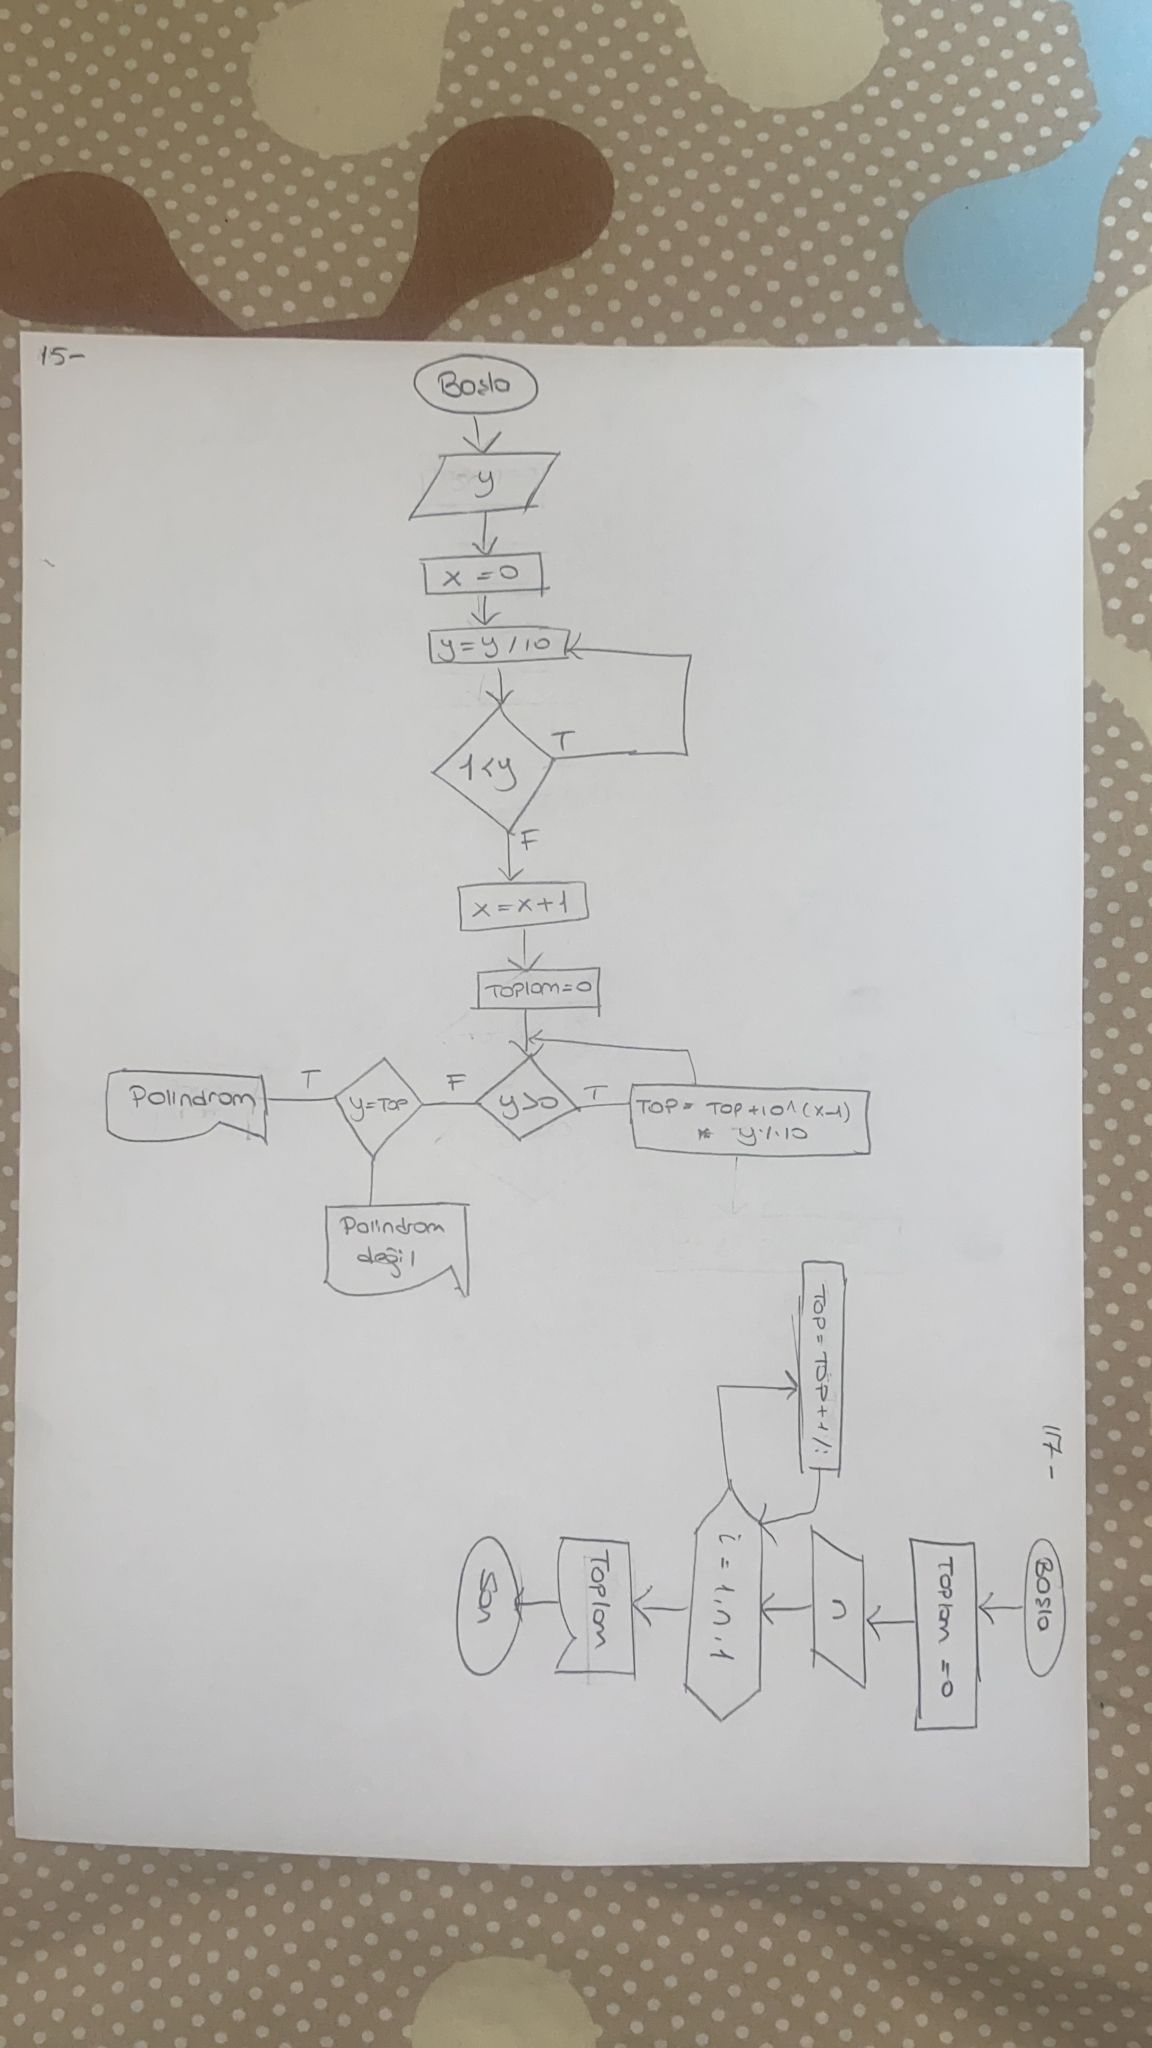 15-
Başla
y
x=0
y=y/10
1<y
T
F
x=x+1
Toplam=0
y>0
T
TOP= TOP+10^(x-1)
* y%10
F
y=TOP
T
Polindrom
Polindrom
değil
17-
Başla
Toplam=0
n
i=1,n,1
TOP=TOP+1/i
Toplam
Son